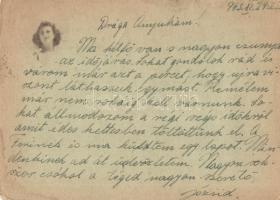 943. XI. 29.
Drága Anyukám!
Ma hétfő van s nagyon csunya
az időjárás. Sokat gondolok rád és
várom már azt a percet, hogy ujra vi-
szont láthassuk egymást. Remélem
már nem sokáig kell várnunk. So-
kat álmodozom a régi szép időkről
amit édes kettesben töltöttünk el. A
Ferinek is ma küldtem egy lapot. Min-
denkinek add át üdvözletem. Nagyon sok-
szor csókol a téged nagyon szerető
József